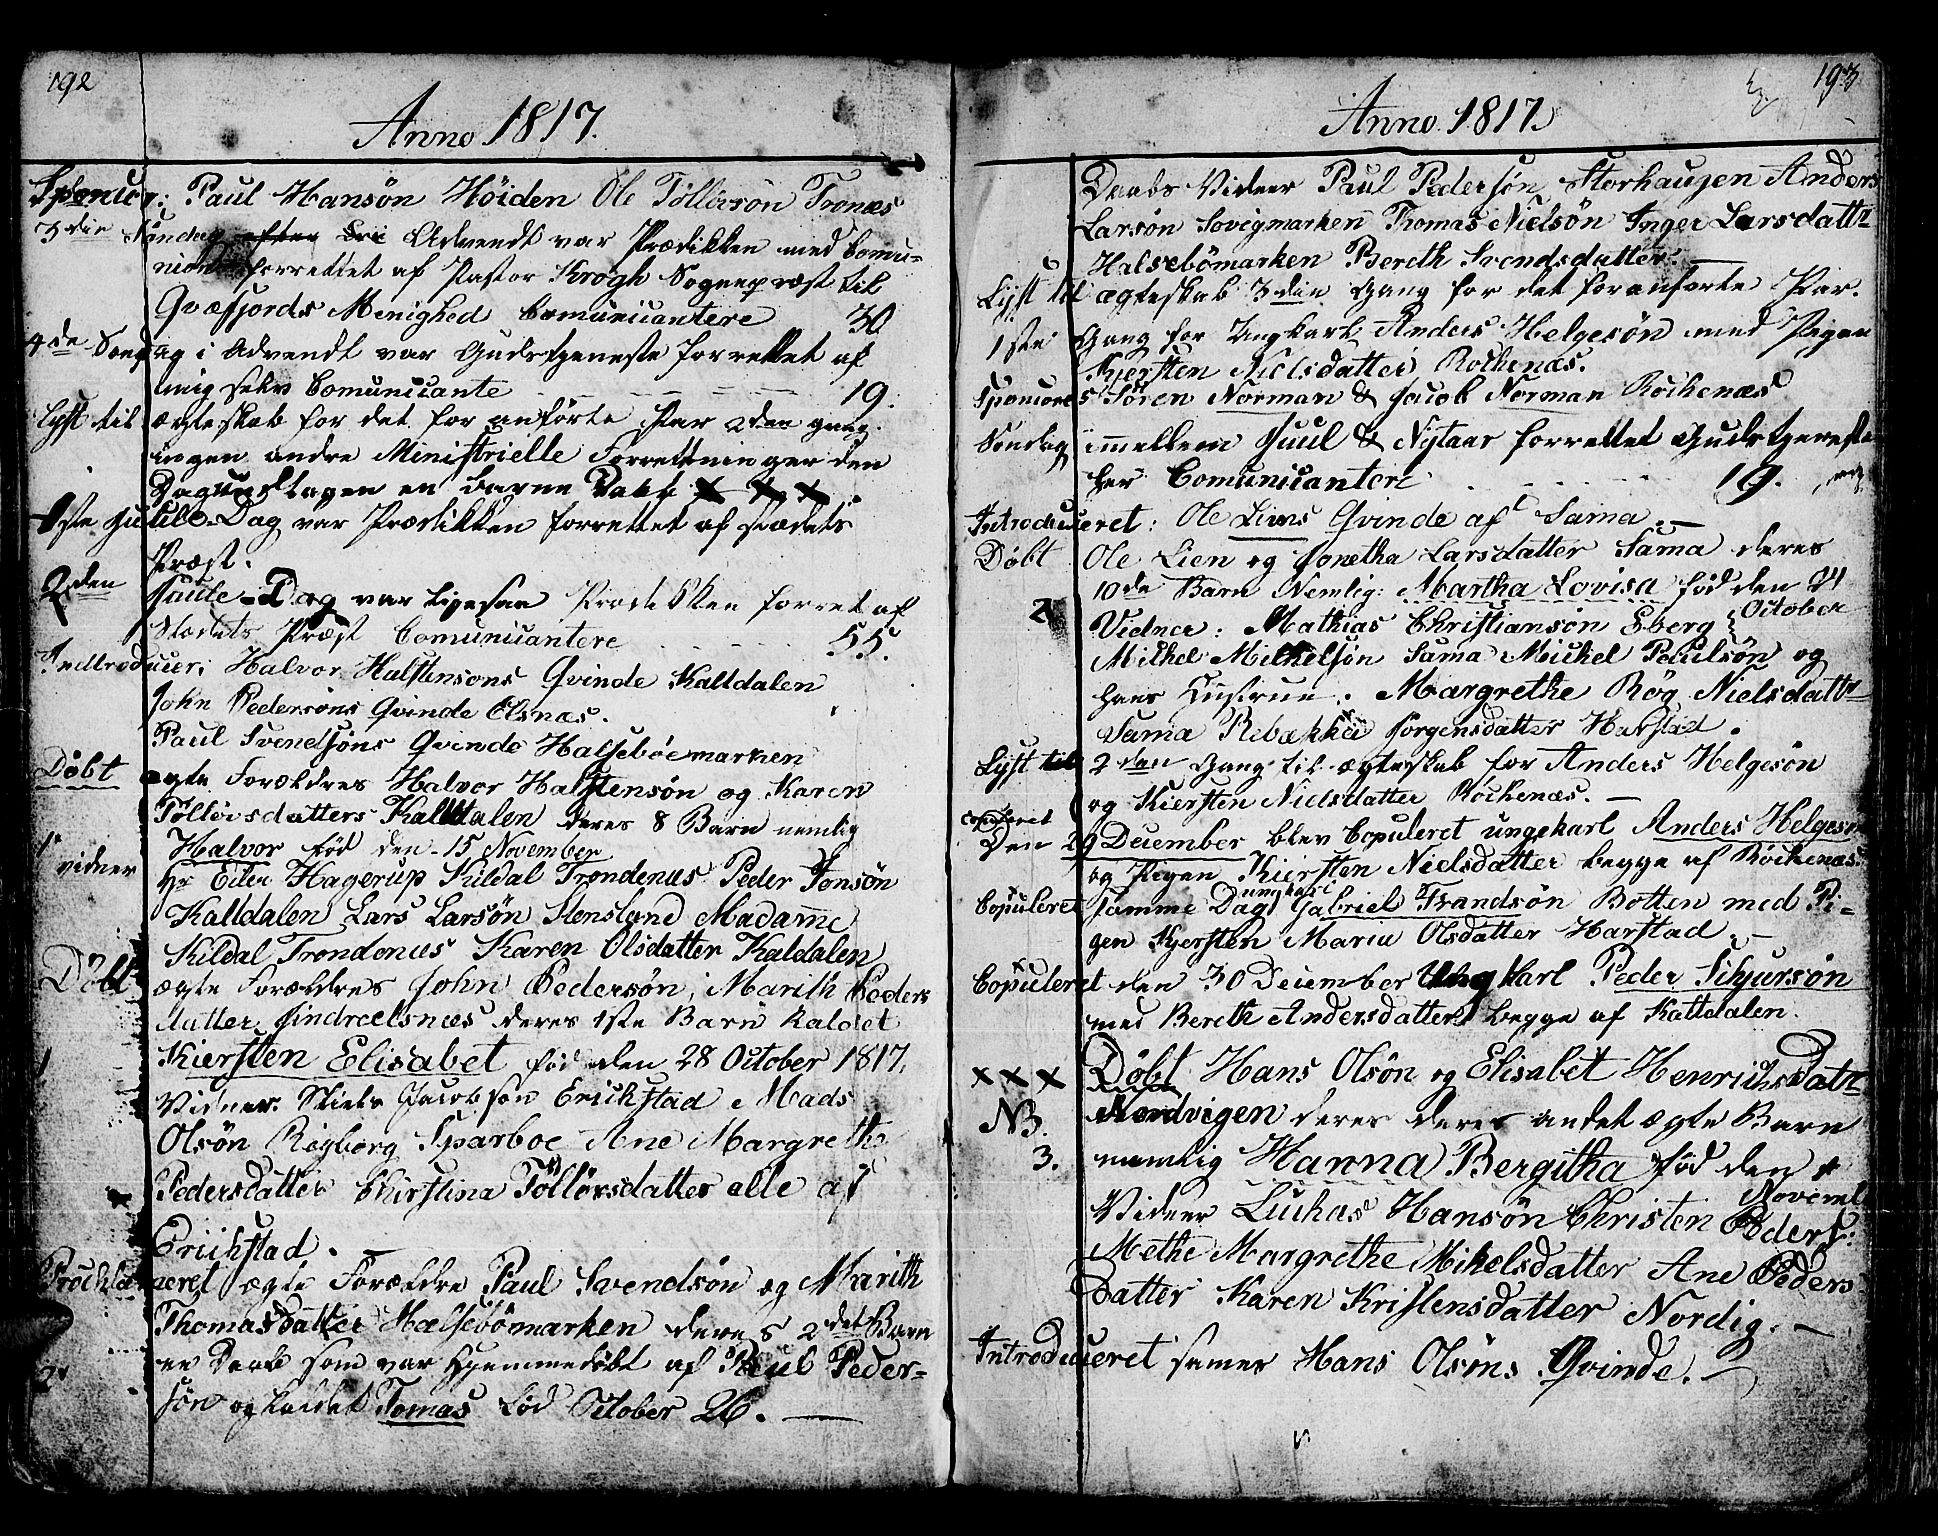 192
Anno 1817.
Sponsor: Paul Hansøn Höiden Ole Töllövsön Tronæs
3die Søndag Advendt var Prædikken med Comu-
nion forrettet af Pastor Krogh Sognepræst til
Qvæfjords Menighed Comunicantere 30
4de Søndag i Advendt var Gudstjeneste forrettet af
mig selv Comunicante 19.
Lyst til ægteskab for det for anførte Par 2den gang.
ingen andre Ministrielle Forrettninger den
Dag undtagen en barne Daab x x x.
1ste Juule-Dag var Prædikken forrettet af stædets
Præst.
2den Juule-Dag var ligesaa Prædikken forret af
Stædets Præst Comunicantere 55.
Indtroducer: Halvor Halstensöns Qvinde Kaltdalen
John Pedersøns Qvinde Elsnæs.
Paul Svendsøns Qvinde Halsebøemarken
Döbt ægte Forældres Halvor Halstensøn og Karen
Töllövsdatters Kaltdalen deres 8 Barn nemlig
1 Halvor fød den 15 November
vidner Hr Eiler Hagerup Kildal Trondenæs Peder Jonsøn
Kaltdalen Lars Larsøn Stensland Madame
Kildal Trondenæs Karen Olsdatter Kaldalen
Döbt ægte Forældres John Pedersøn, Marith Peders
datter Indreelsnæs deres 1ste Barn kaldet
1 Kiersten Elisabet fød den 28 October 1817.
Vidner. Niels Jacobsøn Erichstad Mads
Olsøn Rigborg Sparboe Ane Margrethe
Pedersdatter Christina Töllövsdatter alle af
Erichstad.
Prochlameret ægte Forældre Paul Svendsön og Marith
Thomasdatter Halsebömarken deres 2det Barn
2 en Daab som var hjemmedöbt af Paul Peder-
søn og kaldet Tomas fød October 26.
193
Anno 1817.
Daabs Vidner Paul Pedersøn Storhaugen Anders
Larsøn Sovigmarken Thomas Nielsøn Inger Larsdattr
Halsebömarken Bereth Svendsdatter.
Lyst til ægteskab 3die Gang for det foranførte Par.
1ste Gang for Ungkarl Anders Helgesøn med Pigen
Kjersten Nielsdatter Rochenæs.
Sponsores Sören Norman & Jacob Norman Röchenæs
Søndag imellem Juul & Nytaar forrettet Gudstjeneste
her Comunicantere 19.
Introduceret: Ole Liens Qvinde af Sama.
Döbt Ole Lien og Jonetha Larsdatter Sama deres
10de Barn Nemlig: Martha Lovisa fød den 24
October
2 Vidner: Mathias Christiansøn Eberg
Mikkel Mikkelsøn Sama Mickel Poulsøn og
hans Hustrue. Margrethe Røg Nielsdattr
Sama Rebækka Jørgensdatter Harstad.
Lyst til 2den Gang til ægteskab for Anders Helgesøn
og Kiersten Nielsdatter Röchenæs.
Copuleret
Den 29 December blev Copuleret ungekarl Anders Helgesøn
og Pigen Kiersten Nielsdatter begge af Röchenæs.
ungkarl
Copuleret samme Dag Gabriel Frandsøn Botten med Pi-
gen Kjersten Maria Olsdatter Harstad.
Copuleret den 30 December Ungkarl Peder Sihursøn
med Bereth Andersdatter begge af Kaltdalen.
x x x Döbt Hans Olsøn og Elisabet Henrichsdattr
NB. Nordvigen deres deres andet ægte Barn
3. nemlig Hanna Bergitha fød den
Novemb
Vidner Luckas Hansøn Christen Peders:
Methe Margrethe Mikelsdatter Ane Peders
datter Karen Kristensdatter Nordvig.
Introduceret samer Hans Olsøns Qvinde.